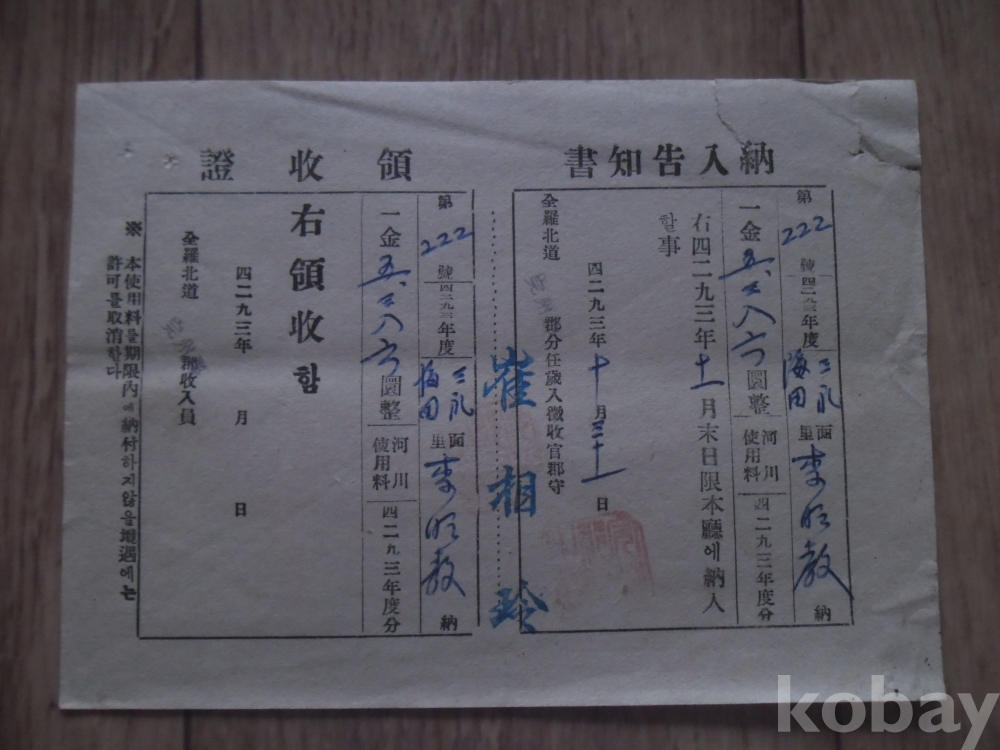 納入告知書
第 222 號 四二九三年度 三礼 面 海田 里 李 教 納
一金 五、三八六 圓整 河川使用料 四二九三年度分
右四二九三年 十一 月末日限本廳에納入
할事
四二九三年 十 月 三十一 日
全羅北道 郡分任歲入徵收官郡守
崔相玲
領收證
第 222 號 四二九三年度 三礼 面 海田 里 李 教 納
一金 五、三八六 圓整 河川使用料 四二九三年度分
右領收함
四二九三年 月 日
全羅北道 郡收入員
※ 本使用料를期限內에納付하지않을境遇에는
許可를取消한다
kobay